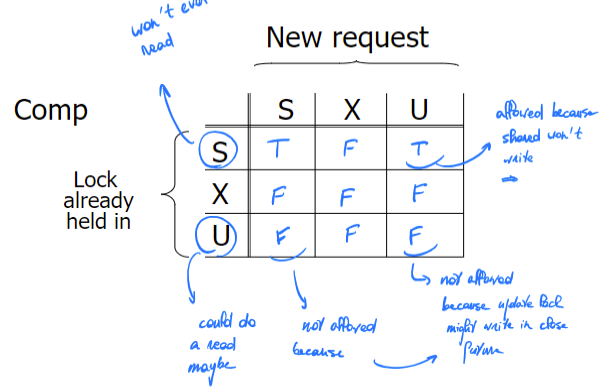 won't even
read
New request
Comp
S X U
S T F T
X F F F
U F F F
Lock
already
held in
allowed because
shared won't
write
⇒
could do
a read
maybe
not allowed
because
not allowed
because update lock
might write in close
future